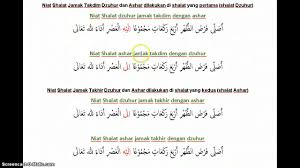 Niat Shalat Jamak Takdim Dzuhur dan Ashar dilakukan di shalat yang pertama (shalat Dzuhur)
Niat Shalat dzuhur jamak takdim dengan ashar
أُصَلِّي فَرْضَ الظُّهْرِ أَرْبَعَ رَكَعَاتٍ مَجْمُوْعًا إِلَيْهِ الْعَصْرُ أَدَاءً لله تَعَالَى
Niat Shalat ashar jamak takdim dengan dzuhur
أُصَلِّي فَرْضَ الْعَصْرِ أَرْبَعَ رَكَعَاتٍ مَجْمُوْعًا إِلَى الظُّهْرِ أَدَاءً لله تَعَالَى
Niat Shalat Jamak Takhir Dzuhur dan Ashar dilakukan di shalat yang kedua (shalat Ashar)
Niat Shalat dzuhur jamak takhir dengan ashar
أُصَلِّي فَرْضَ الظُّهْرِ أَرْبَعَ رَكَعَاتٍ مَجْمُوْعًا إِلَى الْعَصْرِ أَدَاءً لله تَعَالَى
Niat Shalat ashar jamak takhir dengan dzuhur